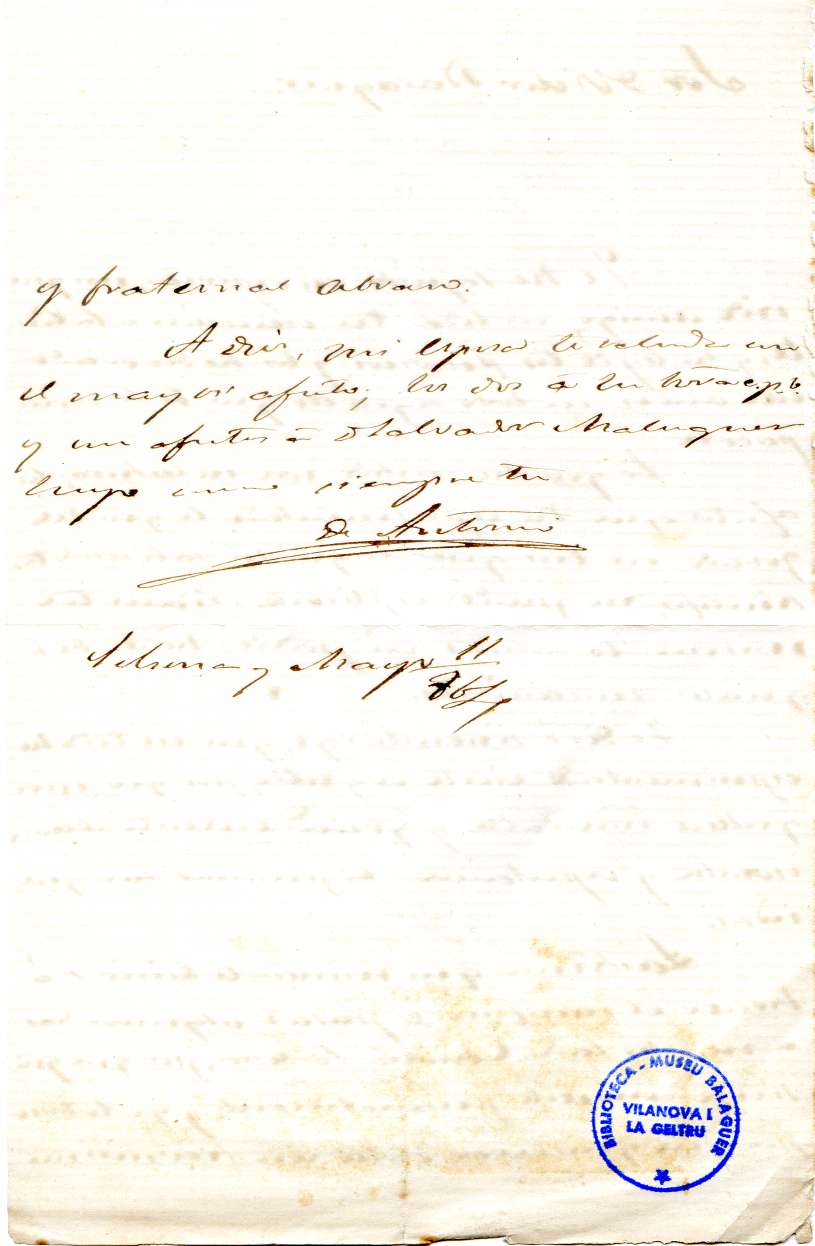 y fraternal abrazo.
A dios, mi esposa te saluda con
el mayor afecto; los dos á tu Sõra c.p.b.
y mis afectos á D Salvador Maluquer
tuyo como siempre tu
De Antonio
y Mayo 11
867
BIBLIOTECA - MUSEU BALAGUER
VILANOVA I
LA GELTRU